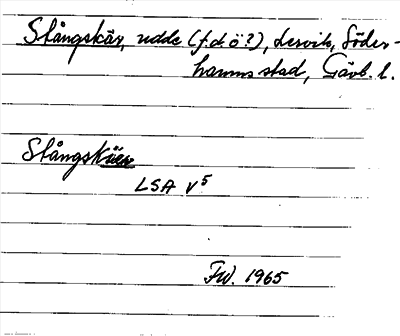 Stångskär, udde (f.d. ö?), Lervik, Söder-
hamns stad, Gävl. l.
Stångskär
LSA V5
FW. 1965